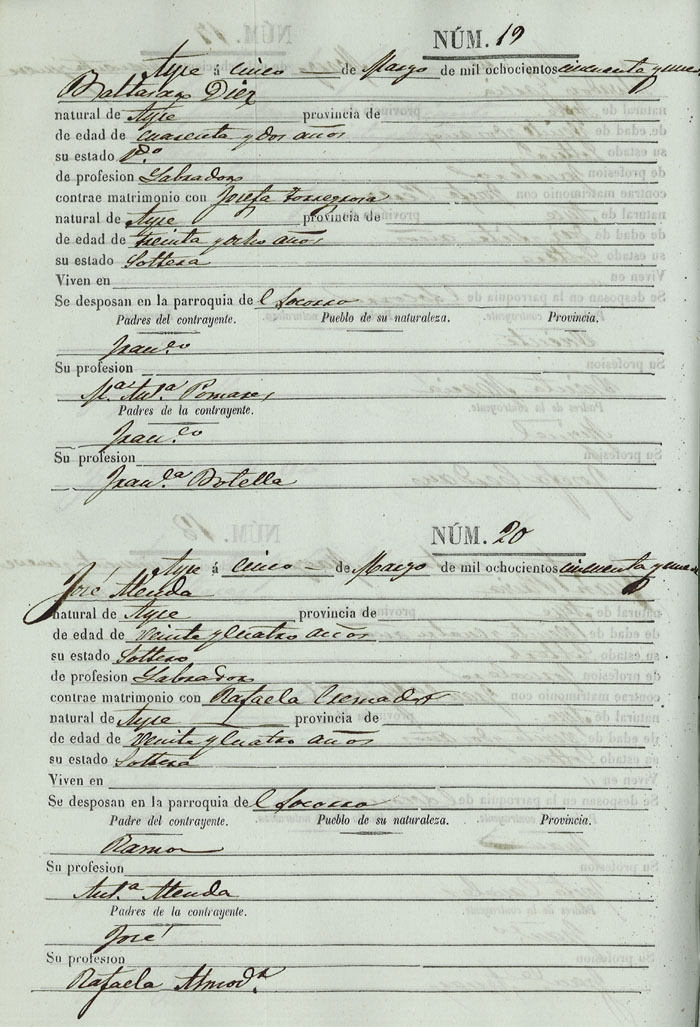 NÚM. 19
Aspe á cinco de Marzo de mil ochocientos cincuenta y nueve
Baltasar Diez
natural de Aspe provincia de
de edad de cuarenta y dos años
su estado V.do
de profesion Labrador
contrae matrimonio con Josefa Torregrosa
natural de Aspe provincia de
de edad de treinta y ocho años
su estado Soltera
Viven en
Se desposan en la parroquia del Socorro
Padres del contrayente. Pueblo de su naturaleza. Provincia.
Fran.co
Su profesion
M.a Ant.a Pomares
Padres de la contrayente.
Fran.co
Su profesion
Fran.ca Botella
NÚM. 20
Aspe á cinco de Marzo de mil ochocientos cincuenta y nueve
José Alenda
natural de Aspe provincia de
de edad de veinte y cuatro años
su estado Soltero
de profesion Labrador
contrae matrimonio con Rafaela Cremades
natural de Aspe provincia de
de edad de veinte y cuatro años
su estado Soltera
Viven en
Se desposan en la parroquia del Socorro
Padre del contrayente. Pueblo de su naturaleza. Provincia.
Ramon
Su profesion
Ant.a Alenda
Padres de la contrayente.
José
Su profesion
Rafaela Almod.r